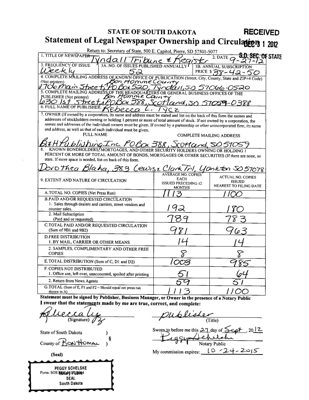 STATE OF SOUTH DAKOTA
RECEIVED
Statement of Legal Newspaper Ownership and Circulation
DEC 3 1 2012
Return to: Secretary of State, 500 E. Capitol, Pierre, SD 57501-5077
S.D. SEC. OF STATE
1. TITLE OF NEWSPAPER Tyndall Tribune & Register
2. DATE 9-27-12
3. FREQUENCY OF ISSUE Weekly
3A. NO. OF ISSUES PUBLISHED ANNUALLY 52
3B. ANNUAL SUBSCRIPTION PRICE $
4. COMPLETE MAILING ADDRESS OF KNOWN OFFICE OF PUBLICATION (Street, City, County, State and ZIP+4 Code) (Not printers).
Bon Homme County
Main Street, PO Box 520, Tyndall, SD 57066-0520
5. COMPLETE MAILING ADDRESS OF THE HEADQUARTERS OR GENERAL BUSINESS OFFICES OF THE PUBLISHERS (Not printers)
Bon Homme County
630 1st Street, PO Box 388, Scotland, SD 57059-0388
6. FULL NAME OF PUBLISHER Rebecca L. Tycz
7. OWNER (If owned by a corporation, its name and address must be stated and list on the back of this form the names and addresses of stockholders owning or holding 1 percent or more of total amount of stock. If not owned by a corporation, the names and addresses of the individual owners must be given. If owned by a partnership or other unincorporated firm, its name and address, as well as that of each individual must be given.
FULL NAME
COMPLETE MAILING ADDRESS
B&H Publishing Inc, PO Box 388, Scotland, SD 57059
8. KNOWN BONDHOLDERS, MORTGAGEES, AND OTHER SECURITY HOLDERS OWNING OR HOLDING 1 PERCENT OR MORE OF TOTAL AMOUNT OF BONDS, MORTGAGES OR OTHER SECURITIES (If there are none, so state. If more space is needed, list on back of this form.
Dorothea Blaha, 389 Lewis & Clark Trl, Yankton SD 57078
9. EXTENT AND NATURE OF CIRCULATION
AVERAGE NO. COPIES EACH ISSUED PRECEDING 12 MONTHS
ACTUAL NO. COPIES ISSUED NEAREST TO FILING DATE
A. TOTAL NO. COPIES (Net Press Run) 1113 1100
B. PAID AND/OR REQUESTED CIRCULATION
1. Sales through dealers and carriers, street vendors and counter sales. 192 180
2. Mail Subscription (Paid and or requested) 789 783
C. TOTAL PAID AND/OR REQUESTED CIRCULATION (Sum of 9B1 and 9B2) 981 963
D. FREE DISTRIBUTION
1. BY MAIL, CARRIER OR OTHER MEANS 14 14
2. SAMPLES, COMPLIMENTARY AND OTHER FREE COPIES 8 8
E. TOTAL DISTRIBUTION (Sum of C, D1 and D2) 1003 985
F. COPIES NOT DISTRIBUTED
1. Office use, left over, unaccounted, spoiled after printing 51 64
2. Return from News Agents 59 51
G. TOTAL (Sum of E, F1 and F2 - Should equal net press run shown in A) 1113 1100
Statement must be signed by Publisher, Business Manager, or Owner in the presence of a Notary Public
I swear that the statements made by me are true, correct, and complete:
Rebecca Tycz
(Signature)
publisher
(Title)
State of South Dakota )
§
County of Bon Homme )
Sworn to before me this 27 day of Sept, 2012
Peggy Schelske
Notary Public
(Seal)
My commission expires: 10-24-2015
PEGGY SCHELSKE
NOTARY PUBLIC
SEAL
South Dakota